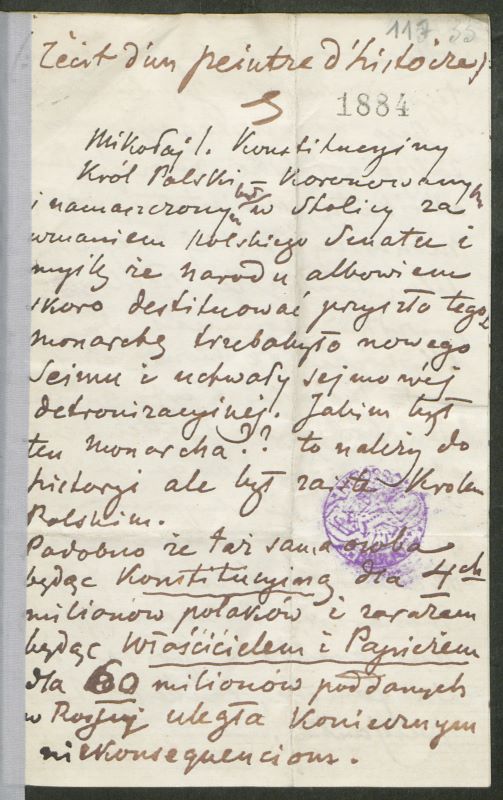 117. 35
Récit d'un peintre d'histoire)
1884
Mikołaj I. Konstitucyjny
Król Polski – Koronowany
i namaszczony w Stolicy za
uznaniem Polskiego Senatu i
myślę że narodu albowiem
skoro destituować przyszło tego
monarchę trzeba było nowego
Sejmu i uchwały sejmowéj
detronizacyjnéj. Jakim był
ten Monarcha?? to należy do
historyi ale był Królem
Polskim.
Podobno że taż sama osoba
będąc Konstitucyjną dla 4ch
milionów polaków i zarazem
będąc Właścicielem i Papieżem
dla 60 milionów poddanych
w Rosyi uległa Koniecznym
niekonsequencions.